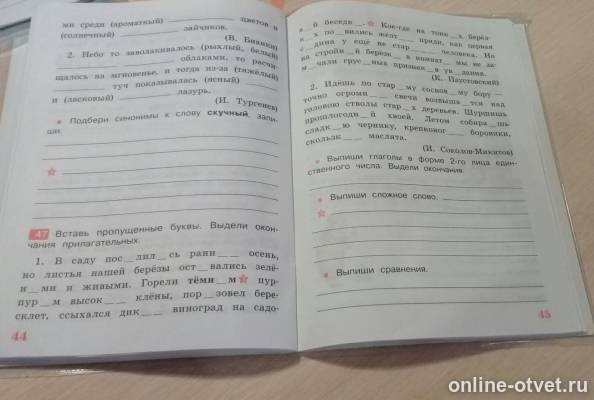 ми среди (ароматный) ____ цветов и
(солнечный) ____ зайчиков.
(В. Бианки)
2. Небо то заволакивалось (рыхлый, белый)
____ облаками, то расчи-
щалось на мгновенье, и тогда из-за (тяжёлый)
____ туч показывалась (ясный) ____
и (ласковый) ____ лазурь.
(И. Тургенев)
Подбери синонимы к слову скучный, запи-
ши.
47 Вставь пропущенные буквы. Выдели окон-
чания прилагательных.
1. В саду пос__лил__сь ранн____ осень,
но листья нашей берёзы ост__вались зелё-
н__ми и живыми. Горели тёмн__м пур-
пур__м высок____ клёны, пор__зовел бере-
склет, ссыхался дик____ виноград на садо-
44
в__й беседк__. Кое-где на тонк__х берёз-
к__х по__вились жёлт____ пряди, как первая
с__дина у ещё не стар____ человека. Но
на стройн__й берёзк__ в комнат__ мы не за-
м__чали грус__ных признак__в ув__дания.
(К. Паустовский)
2. Идёшь по стар__му соснов__му бору —
точно огромн____ свечи возвыша__тся над
головою стволы стар__х деревьев. Шуршишь
прошлогодн__й хвоей. Летом собира__шь
сладк__ю чернику, крепконог____ боровики,
скользк____ маслята.
(И. Соколов-Микитов)
Выпиши глаголы в форме 2-го лица един-
ственного числа. Выдели окончания.
Выпиши сложное слово. ____
Выпиши сравнения.
45
online-otvet.ru